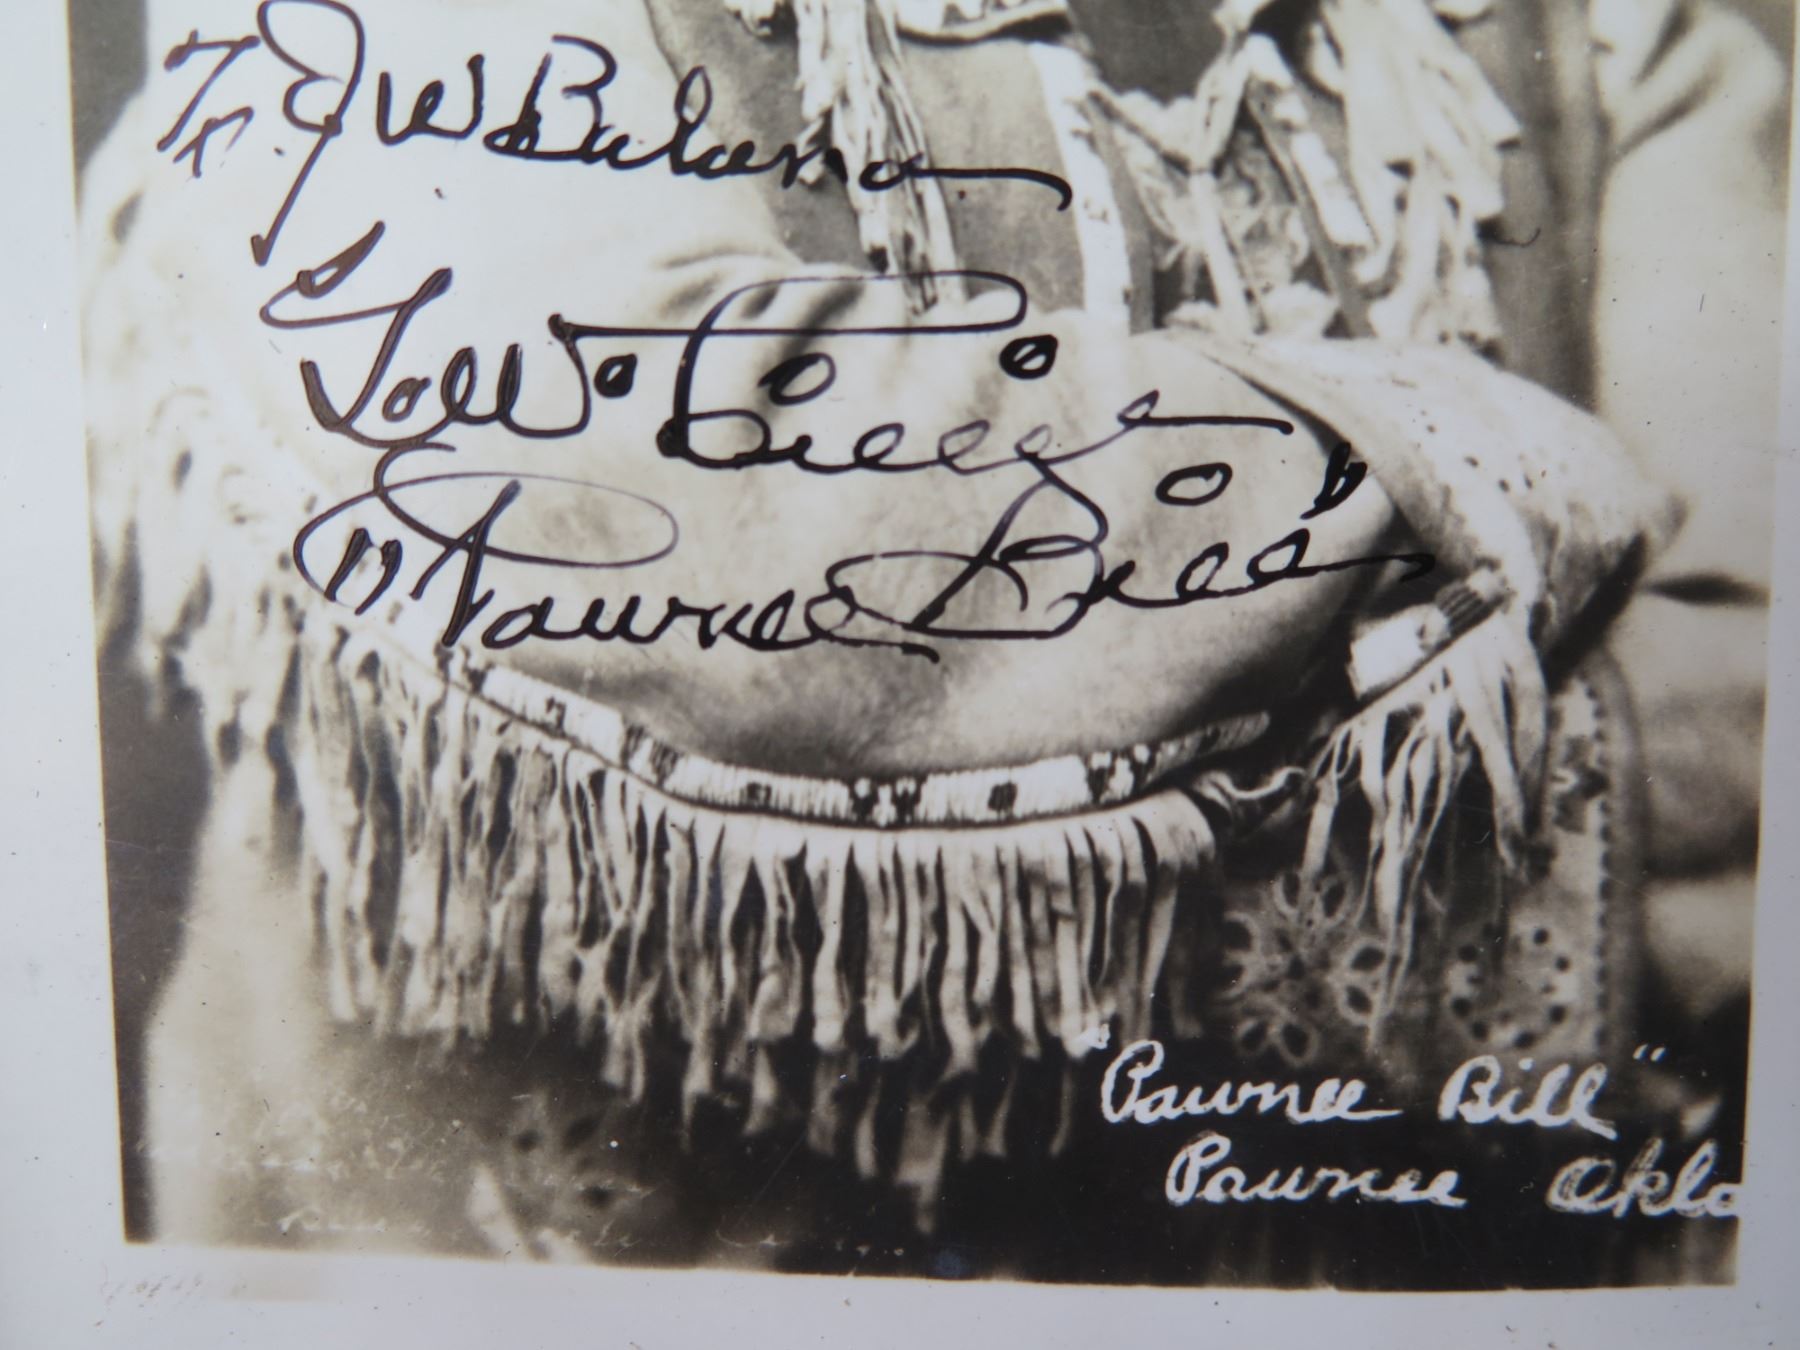 To J W Balana
Gow Lillie
"Pawnee Bill"
"Pawnee Bill"
Pawnee Okla